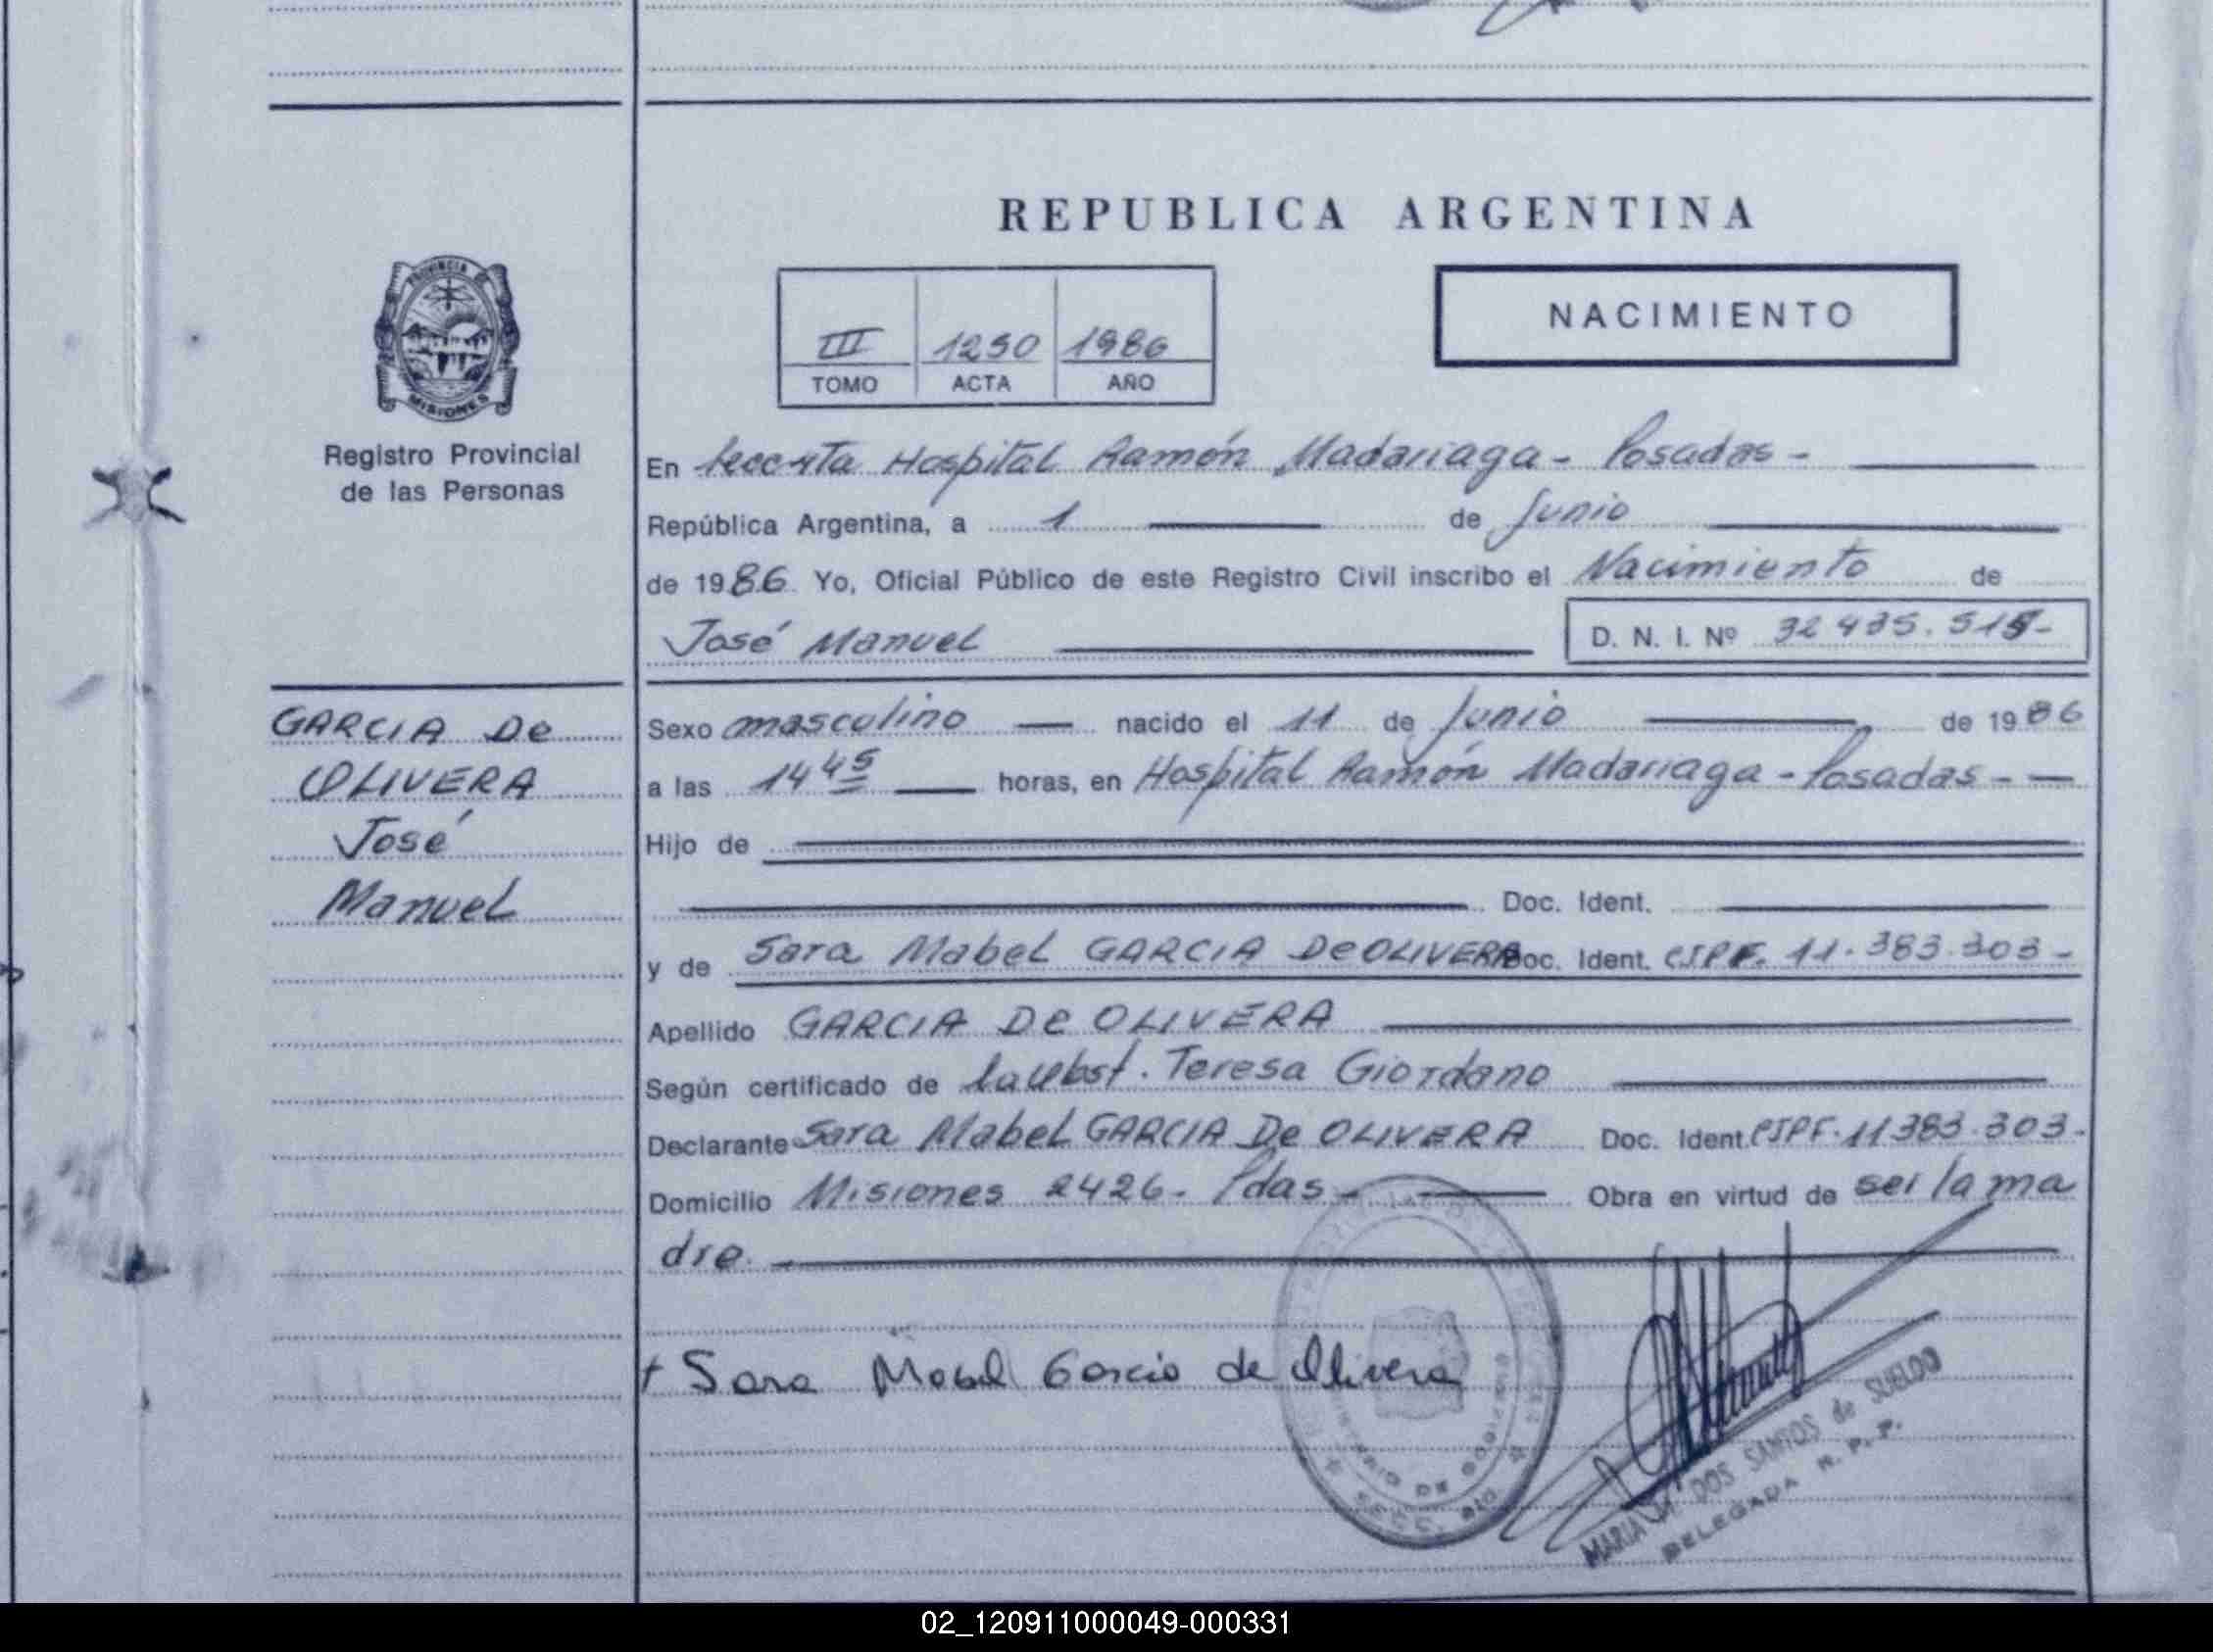 REPUBLICA ARGENTINA
PROVINCIA DE
MISIONES
Registro Provincial
de las Personas
III 1250 1986
TOMO ACTA AÑO
NACIMIENTO
En Hospital Ramón Madariaga - Posadas -
República Argentina, a 1 de Junio
de 1986. Yo, Oficial Público de este Registro Civil inscribo el Nacimiento de
José Manuel D. N. I. Nº
GARCIA De
OLIVERA
José
Manuel
Sexo masculino nacido el 11 de Junio de 1986
a las 14 45 horas, en Hospital Ramón Madariaga - Posadas -
Hijo de
Doc. Ident.
y de Sara Mabel GARCIA De OLIVERA Doc. Ident. CIPF. 11.383.303 -
Apellido GARCIA De OLIVERA
Según certificado de la Obst. Teresa Giordano
Declarante Sara Mabel GARCIA De OLIVERA Doc. Ident. CIPF. 11383.303.
Domicilio Misiones 2426 - Pdas - Obra en virtud de ser la ma
dre.
+ Sara Mabel Garcia de Olivera
MARIA DOS SANTOS de SUELDO
DELEGADA R. P. P.
02_120911000049-000331